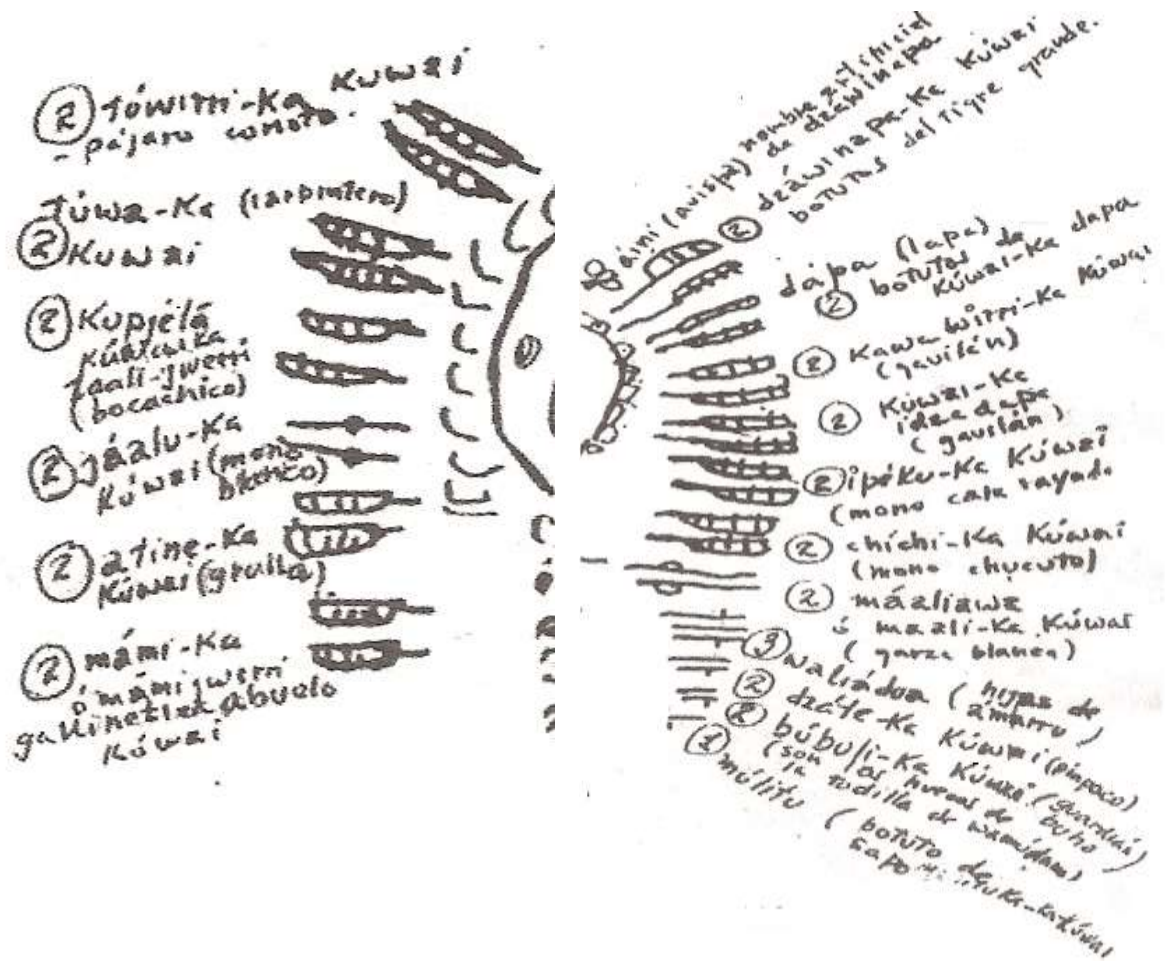 ② tówirri-Ka Kuwai
- pájaro
túwa-Ka (carpintero)
② Kuwai
② Kupjélá
(bocachico)
② jáalu-Ka
Kúwai (mono
blanco)
② atine-Ka
Kúwai (grulla)
② mámi-Ka
ó mámijwerri
abuelo
Kúwai
áini (avispa) nombre
de dzáwinapa
② dzáwinapa-Ka Kúwai
botutos del tigre grande.
dápa (lapa)
② botutos de
Kúwai-Ka dapa
② Kawawirri-Ka Kúwai
(gavilán)
② Kúwai-Ka
idzedapa
(gavilán)
② ipéku-Ka Kúwai
(mono cara rayada
② chíchi-Ka Kúwai
(mono chucuto)
② máaliawa
ó maali-Ka Kúwai
(garza blanca)
③ waliádua (hijas de
ámarru)
② dzáte-Ka Kúwai (piapoco)
② búbuli-Ka Kúwai
(son los huesos de
la rodilla de
① múlitu (botuto de
sapo